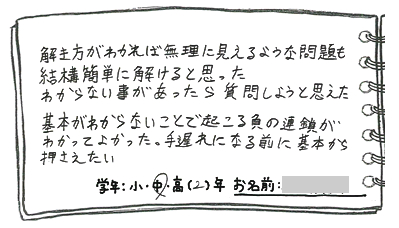 解き方がわかれば無理に見えるような問題も
結構簡単に解けると思った
わからない事があったら質問しようと思えた
基本がわからないことで起こる負の連鎖が
わかってよかった。手遅れになる前に基本から
押さえたい
学年:小・中・高(2)年 お名前: